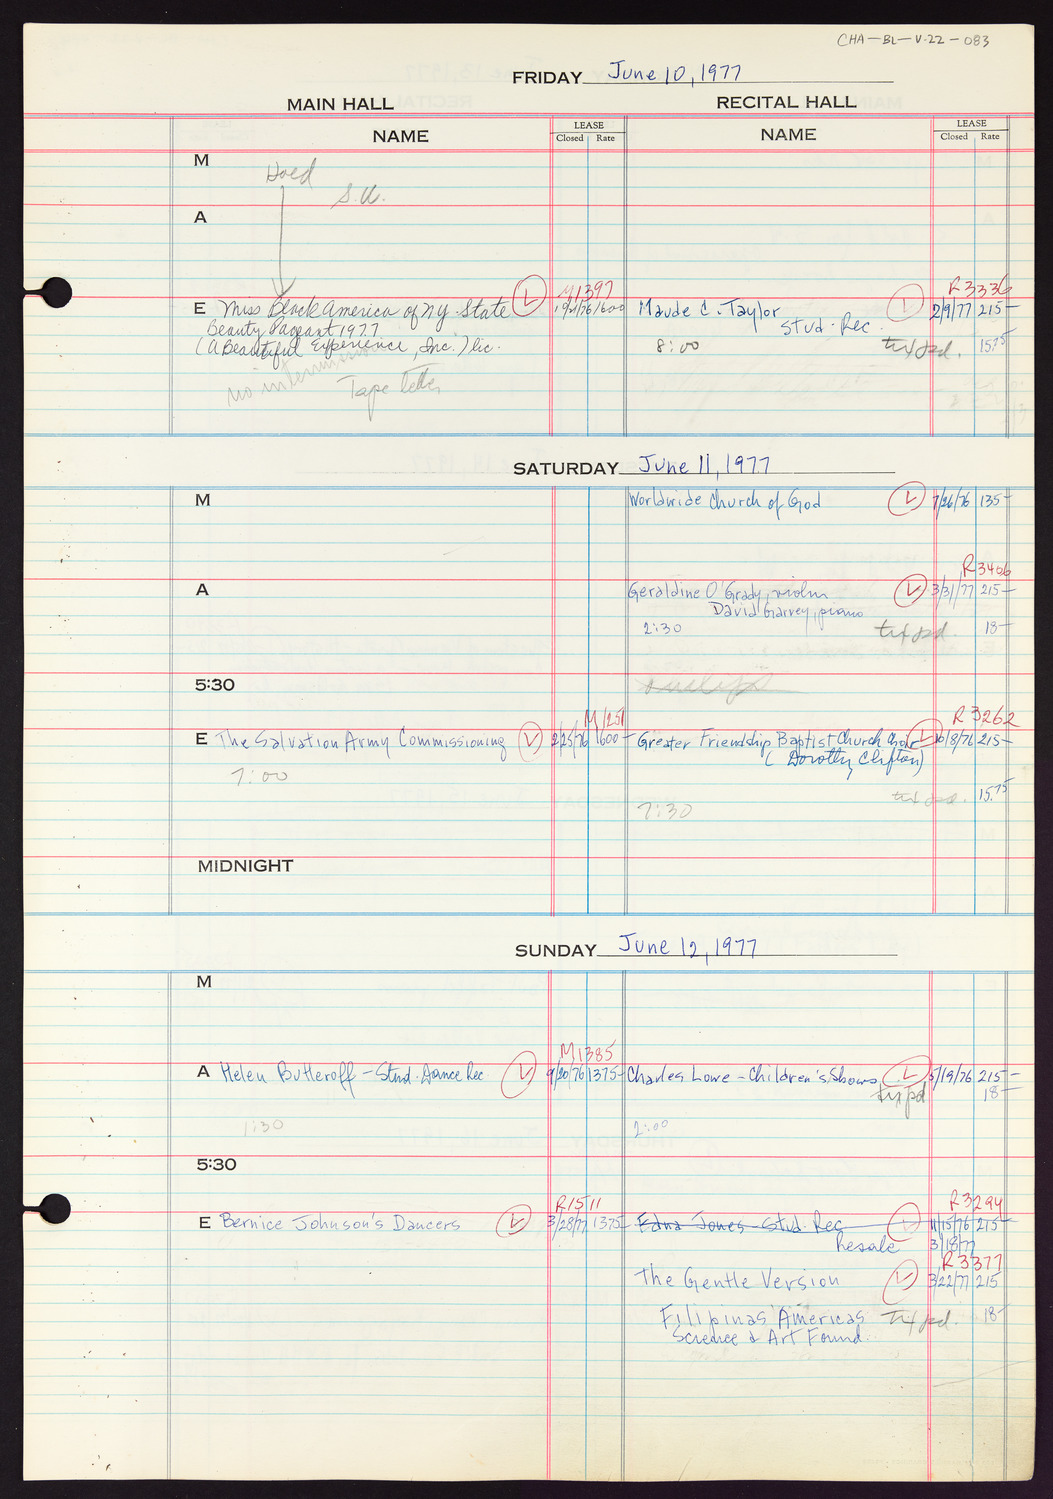 CHA-BL-V.22-083
FRIDAY June 10, 1977
MAIN HALL RECITAL HALL
NAME LEASE Closed Rate NAME LEASE Closed Rate
M
Hold
S.U.
A
M1397 R3336
E Miss Black America of Ny. State 1600 Maude C. Taylor 2/9/77 215-
Beauty Pageant 1977 Stud. Rec.
(A Beautiful Experience, Inc.) lic. 8:00 txf pd. 15.75
no intermission
Tape letter
SATURDAY June 11, 1977
M Worldwide Church of God 7/26/76 135-
R3406
A Geraldine O'Grady, violin 3/31/77 215-
David Garvey, piano
2:30 txf pd. 18-
5:30
M1251 R3262
E The Salvation Army Commissioning 2/25/76 1600- Greater Friendship Baptist Church Choir 10/8/76 215-
(Dorothy Clifton)
7:00 txf pd. 15.75
7:30
MIDNIGHT
SUNDAY June 12, 1977
M
M1385
A Helen Butleroff - Stud. Dance Rec 9/20/76 1375- Charles Lowe - Children's Shows 5/19/76 215-
txf pd 18-
1:30 2:00
5:30
R1511 R3294
E Bernice Johnson's Dancers 3/28/77 1375- Edna Jones - Stud. Rec 11/15/76 215-
Resale 3/18/77
R3377
The Gentle Version 3/22/77 215
Filipinas Americas txf pd. 18-
Science & Art Found.